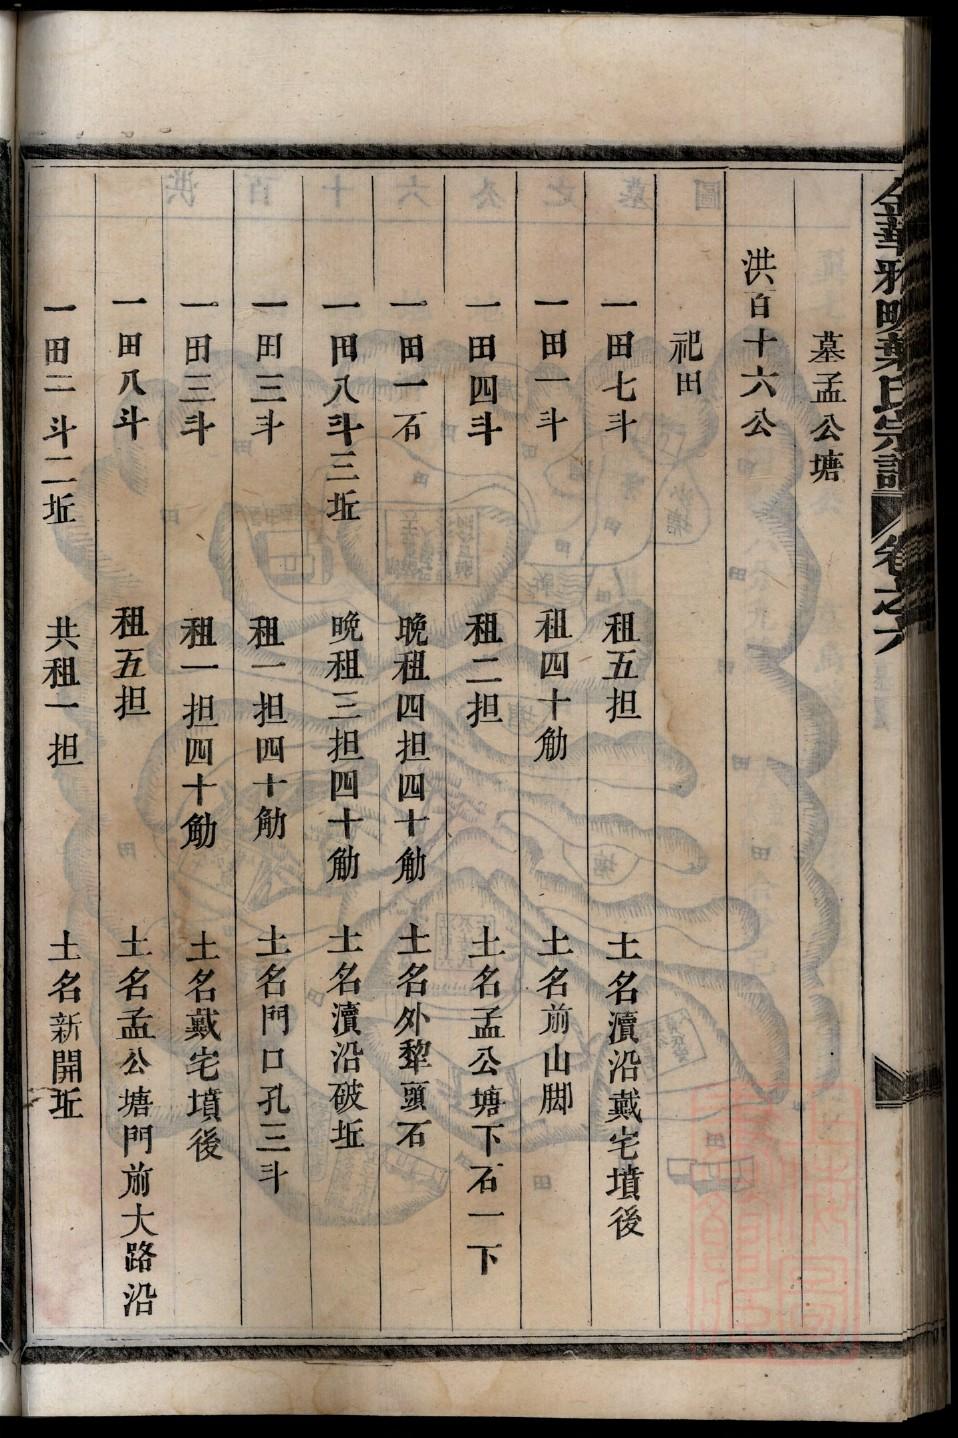 金華雅畈葉氏宗譜 卷之六
墓孟公塘
洪百十六公
祀田
一田七斗 租五担 土名瀆沿戴宅墳後
一田一斗 租四十觔 土名前山脚
一田四斗 租二担 土名孟公塘下石一下
一田一石 晚租四担四十觔 土名外犂頭石
一田八斗三坵 晚租三担四十觔 土名瀆沿破坵
一田三斗 租一担四十觔 土名門口孔三斗
一田三斗 租一担四十觔 土名戴宅墳後
一田八斗 租五担 土名孟公塘門前大路沿
一田二斗二坵 共租一担 土名新開坵